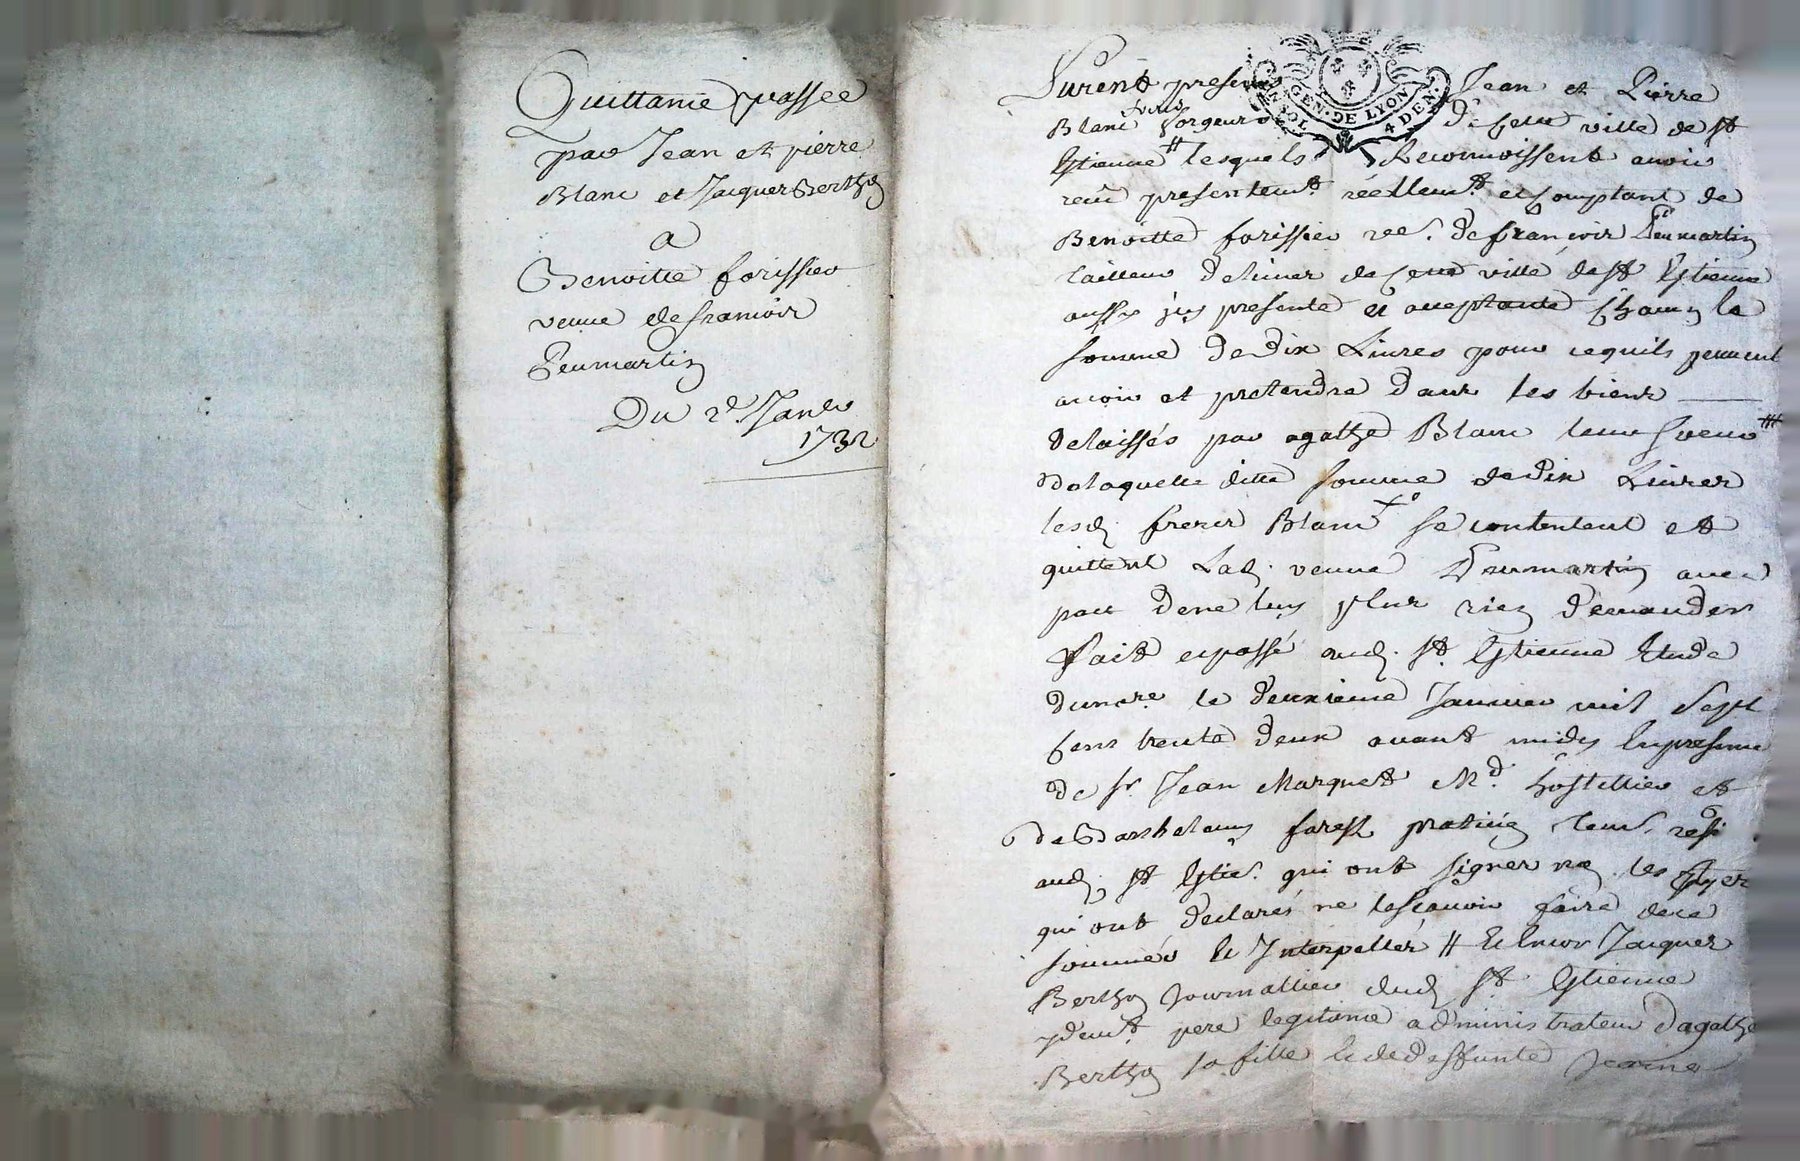 Quittance passée
par Jean et pierre
Blanc et Jacques Berthon
a
Benoitte forissier
veuve de francois
Peumartin
Du 2d. Janer
1732
GEN. DE LYON
4 DEN.
Furent presens Jean et Pierre
Blanc forgeurs de cette ville de st
Estienne # lesquels Reconnoissent avoir
receu presentemt. réellemt. et comptant de
Benoitte forissier ve. de francois Peumartin
tailleur de limes de cette ville de st Estienne
aussy icy presente et acceptante la
somme de dix Livres pour ce quils peuvent
avoir et pretendre dans les biens
delaissés par agathe Blanc leur soeur
de laquelle ditte somme de dix Livres
lesd. freres Blanc se contentent et
quittent Lad. veuve Peumartin avec
pact de ne luy plus rien demander
fait et passé aud. st. Estienne Etude
du nore le deuxieme Janvier mil sept
cens trente deux avant midy En presence
de sr. Jean Marquet Md. hostellier et
de Barthelemy forest praticien
aud. st Estie. qui ont signer non les
qui ont declarés ne le scavoir faire de ce
sommés et Interpellés # et encor Jacques
Berthon Journallier dud. st Estienne
pere legitime administrateur d'agathe
Berthon sa fille et de deffunte Jeanne